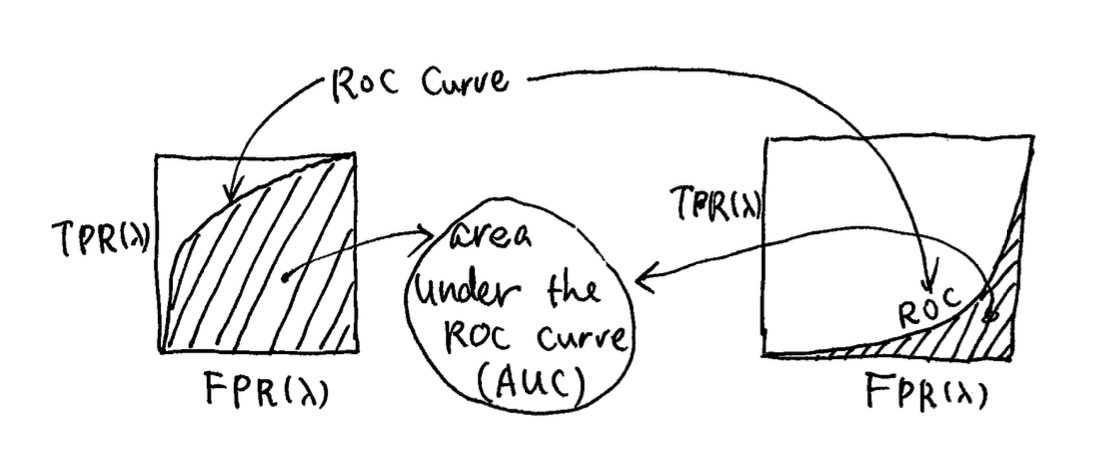 ROC Curve
TPR(λ)
FPR(λ)
area
under the
ROC curve
(AUC)
TPR(λ)
ROC
FPR(λ)